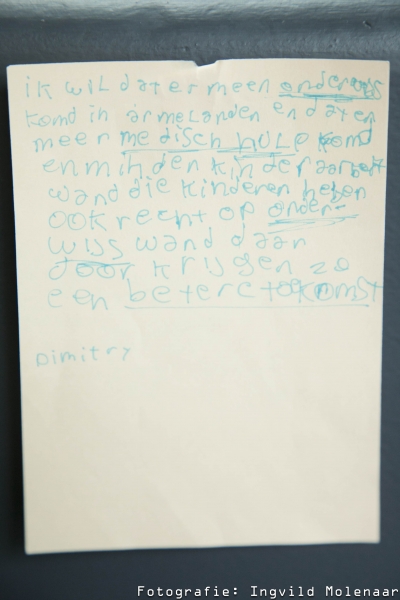 ik wil dat er meen onderwijs
komd in armelanden en dat en
meer medisch hulp komd
en min den kinder aarbeit
wand die kinderen heben
ook recht op onder-
wijs wand daar
door krijgen ze
een betere toekomst
Dimitry
Fotografie: Ingvild Molenaar